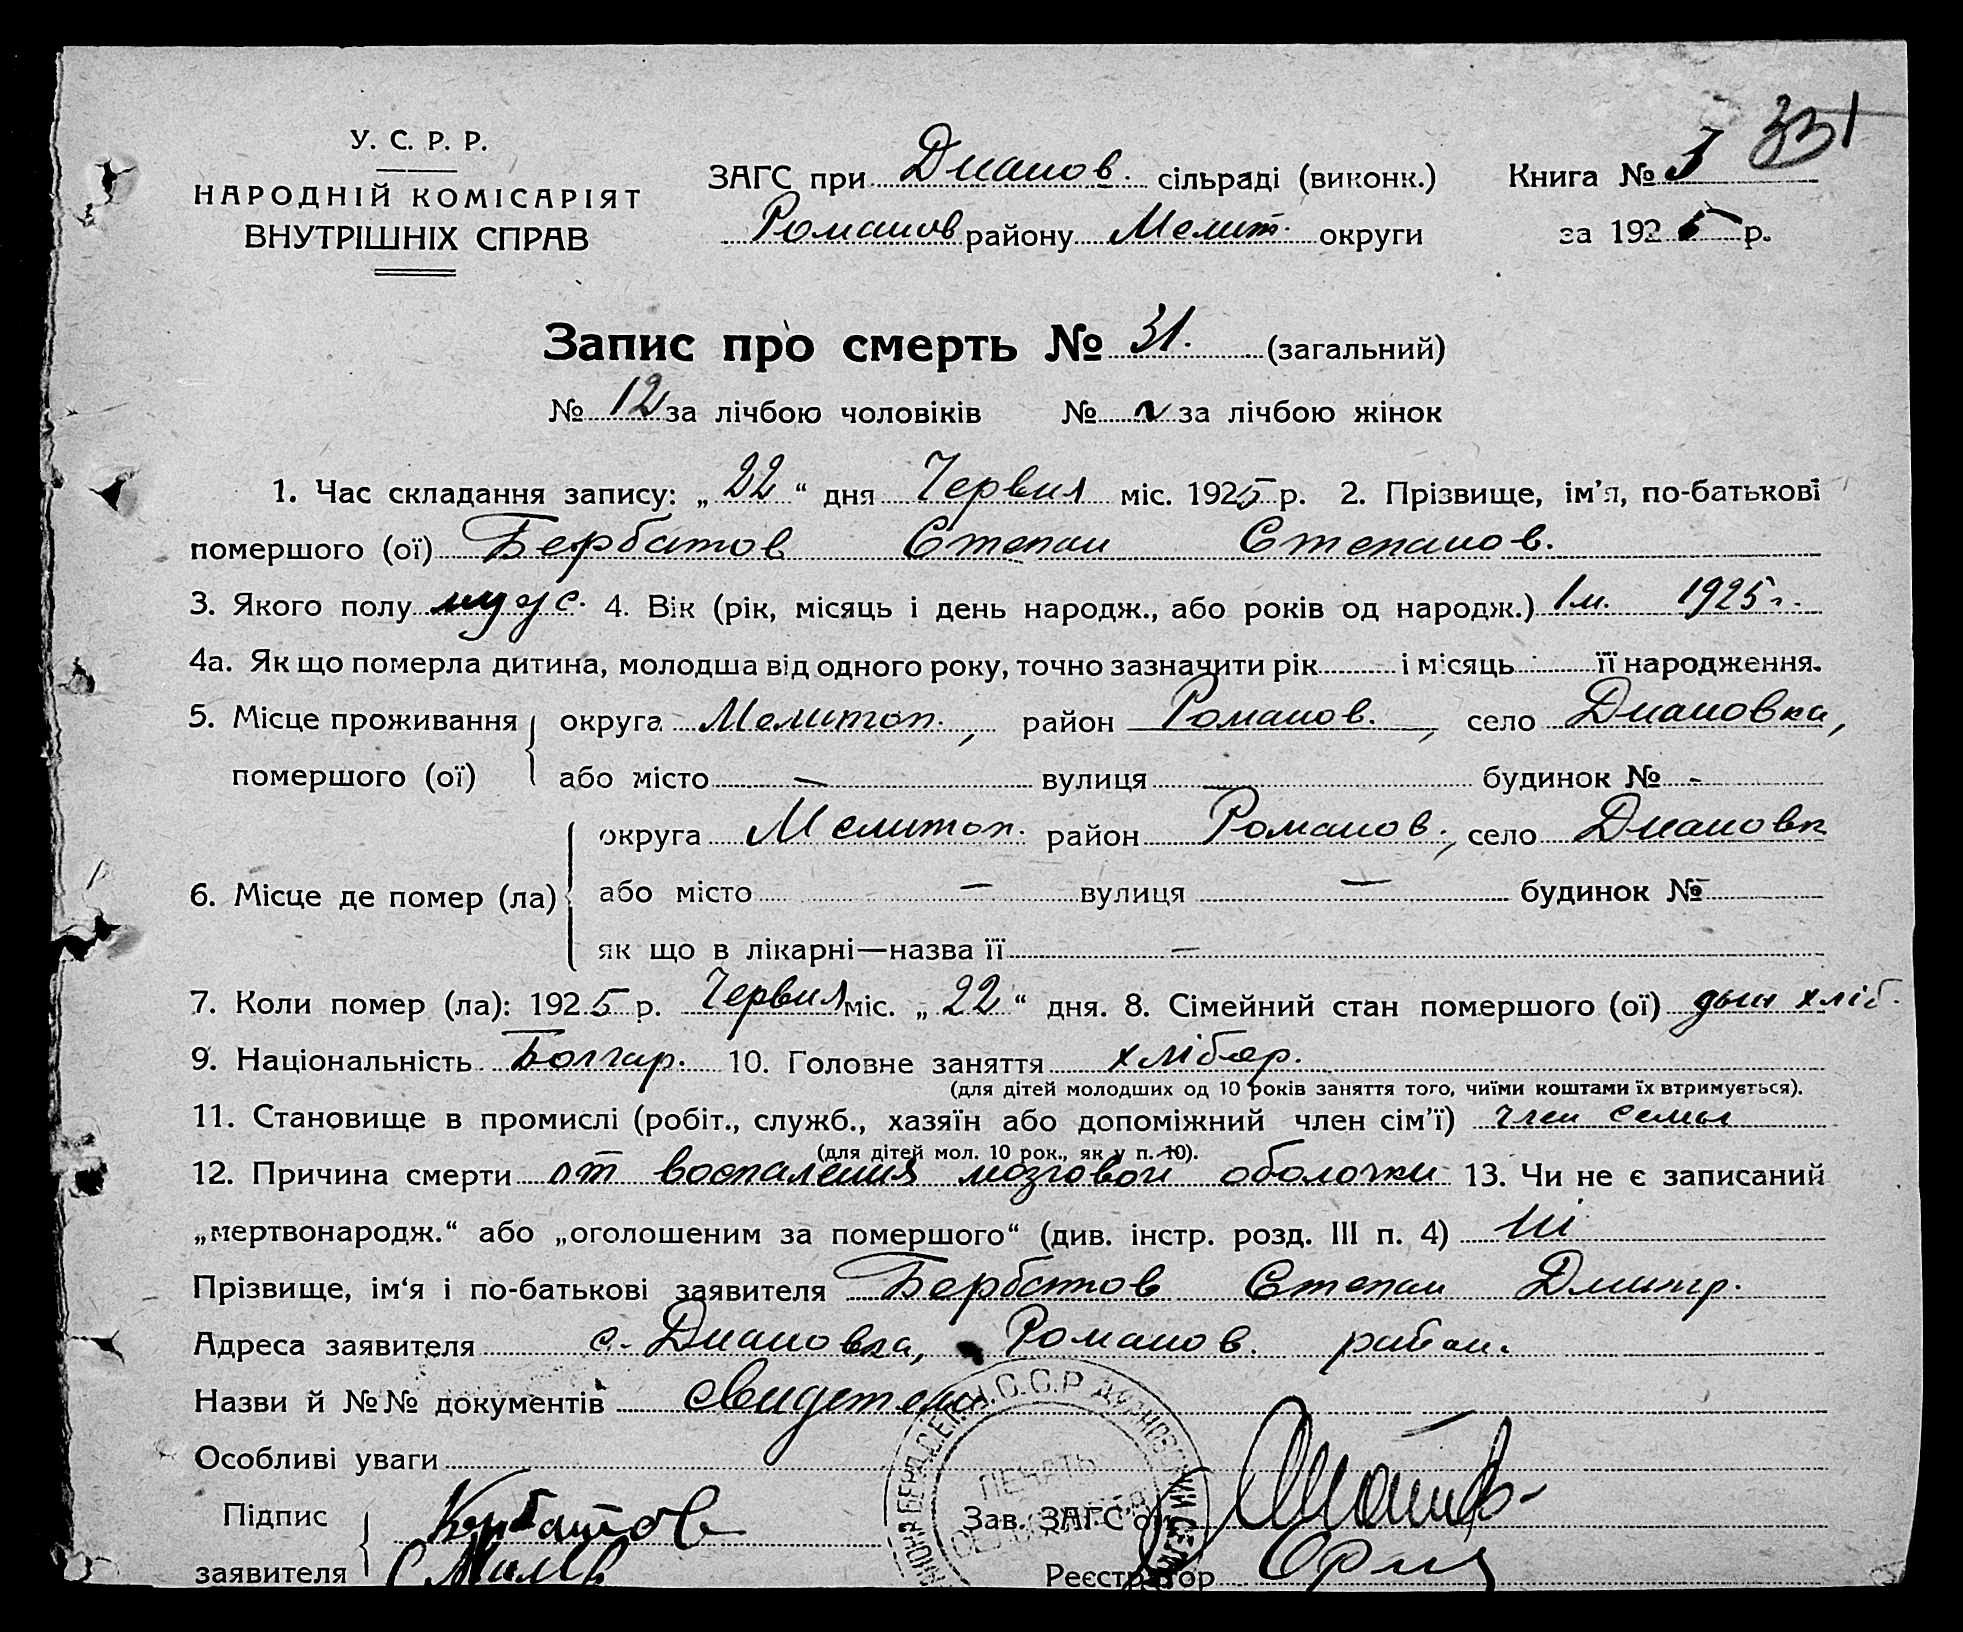 351
У. С. Р. Р.
НАРОДНІЙ КОМІСАРІЯТ
ВНУТРІШНІХ СПРАВ
ЗАГС при Дианов. сільраді (виконк.) Книга №
Романов району Мелит. округи за 1925 р.
Запис про смерть № 31. (загальний)
№ 12 за лічбою чоловіків № за лічбою жінок
1. Час складання запису: „22“ дня Червня міс. 1925 р. 2. Прізвище, ім'я, по-батькові
помершого (ої) Бербатов Степан Степанов.
3. Якого полу муж. 4. Вік (рік, місяць і день народж., або років од народж.) 1 м. 1925 г.
4а. Як що померла дитина, молодша від одного року, точно зазначити рік і місяць її народження.
5. Місце проживання округа Мелитоп., район Романов., село Диановка,
помершого (ої) або місто — вулиця — будинок № -
округа Мелитоп. район Романов., село Диановк
6. Місце де помер (ла) або місто — вулиця — будинок №
як що в лікарні—назва її —
7. Коли помер (ла): 1925 р. Червня міс. „22“ дня. 8. Сімейний стан помершого (ої) хліб.
9. Національність Болгар. 10. Головне заняття хлібор.
(для дітей молодших од 10 років заняття того, чиїми коштами їх втримується).
11. Становище в промислі (робіт., служб., хазяїн або допоміжний член сім'ї) член семьи
(для дітей мол. 10 рок., як у п. 10).
12. Причина смерти от воспаления мозговой оболочки 13. Чи не є записаний
„мертвонародж.“ або „оголошеним за помершого“ (див. інстр. розд. III п. 4) Ні
Прізвище, ім'я і по-батькові заявителя Бербатов Степан Дмитр.
Адреса заявителя с. Диановка, Романов. район.
Назви й №№ документів
Особливі уваги
Підпис Зав. ЗАГС'ом
заявителя Реєстратор
ПЕЧАТЬ